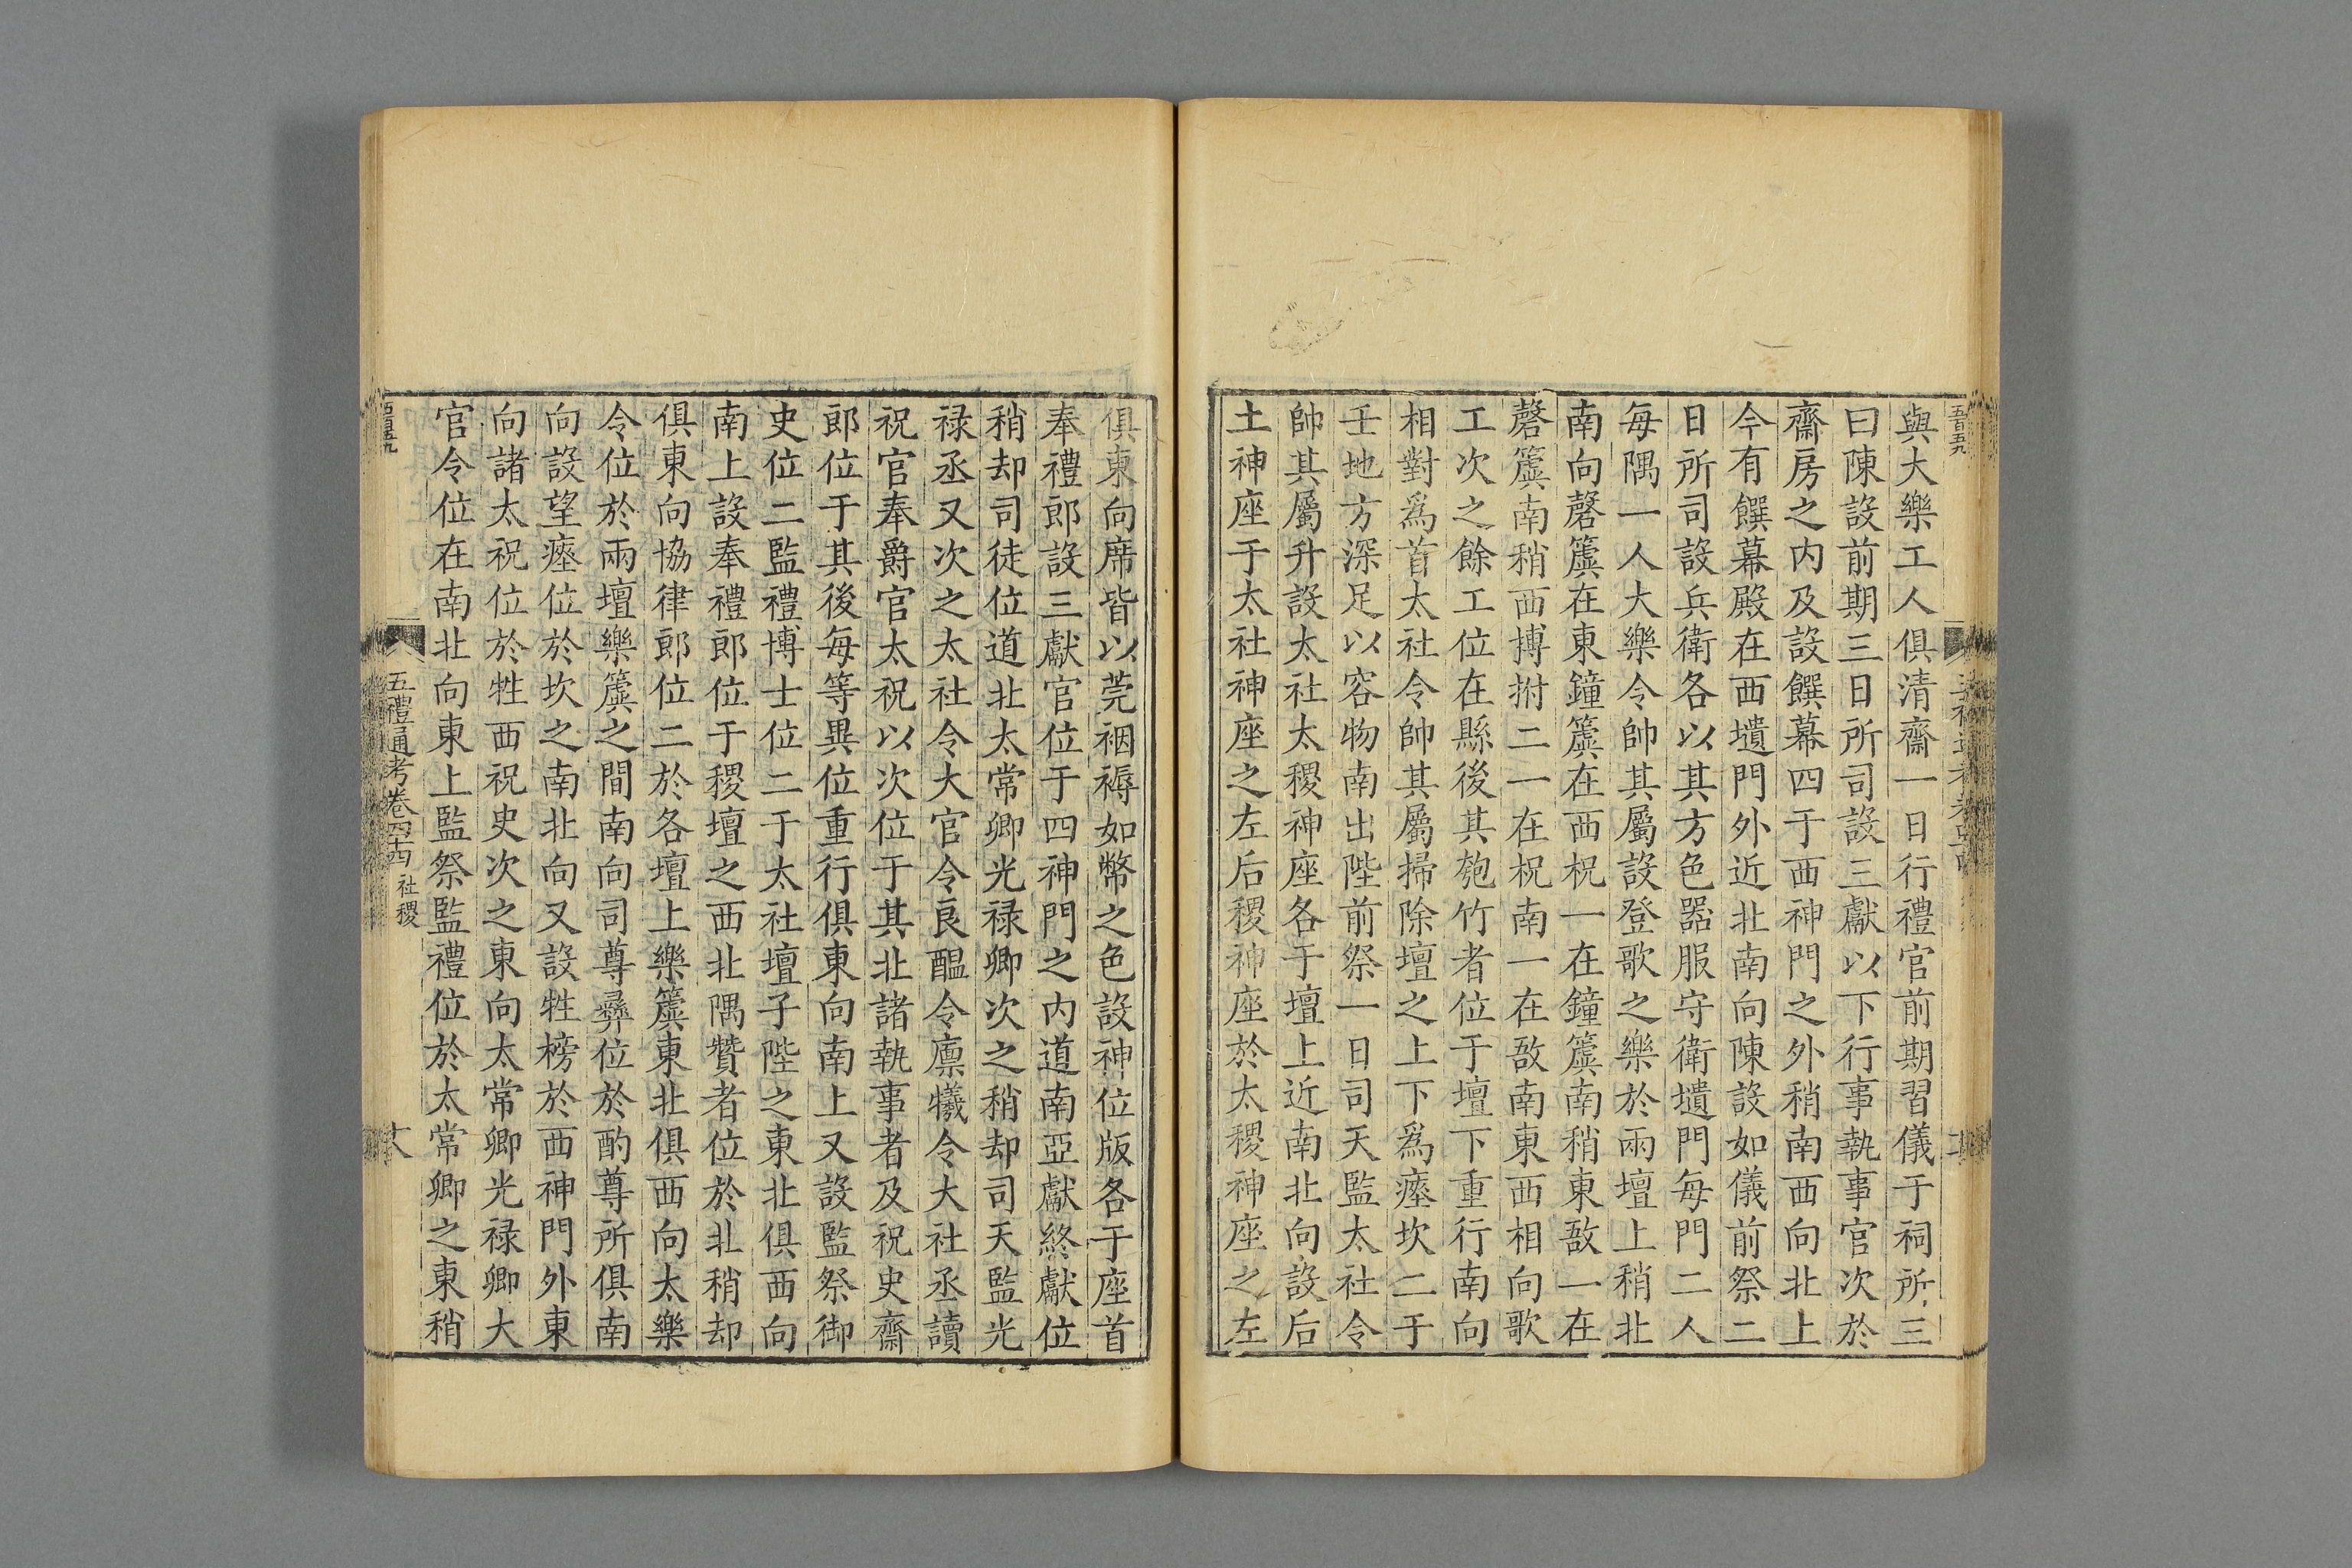 五百五九
與大樂工人俱清齋一日行禮官前期習儀于祠所三
曰陳設前期三日所司設三獻以下行事執事官次於
齋房之内及設饌幕四于西神門之外稍南西向北上
今有饌幕殿在西壝門外近北南向陳設如儀前祭二
日所司設兵衛各以其方色器服守衛壝門每門二人
每隅一人大樂令帥其屬設登歌之樂於兩壇上稍北
南向磬簴在東鐘簴在西柷一在鐘簴南稍東敔一在
磬簴南稍西搏拊二一在柷南一在敔南東西相向歌
工次之餘工位在縣後其匏竹者位于壇下重行南向
相對爲首太社令帥其屬掃除壇之上下爲瘞坎二于
壬地方深足以容物南出陛前祭一日司天監太社令
帥其屬升設太社太稷神座各于壇上近南北向設后
土神座于太社神座之左后稷神座於太稷神座之左
俱東向席皆以莞裀褥如幣之色設神位版各于座首
奉禮郎設三獻官位于四神門之内道南亞獻終獻位
稍却司徒位道北太常卿光禄卿次之稍却司天監光
禄丞又次之太社令大官令良醞令廪犧令大社丞讀
祝官奉爵官太祝以次位于其北諸執事者及祝史齋
郎位于其後每等異位重行俱東向南上又設監祭御
史位二監禮博士位二于太社壇子陛之東北俱西向
南上設奉禮郎位于稷壇之西北隅贊者位於北稍却
俱東向協律郎位二於各壇上樂簴東北俱西向太樂
令位於兩壇樂簴之間南向司尊彝位於酌尊所俱南
向設望瘞位於坎之南北向又設牲榜於西神門外東
向諸太祝位於牲西祝史次之東向太常卿光禄卿大
官令位在南北向東上監祭監禮位於太常卿之東稍
五禮通考卷四十四 社稷